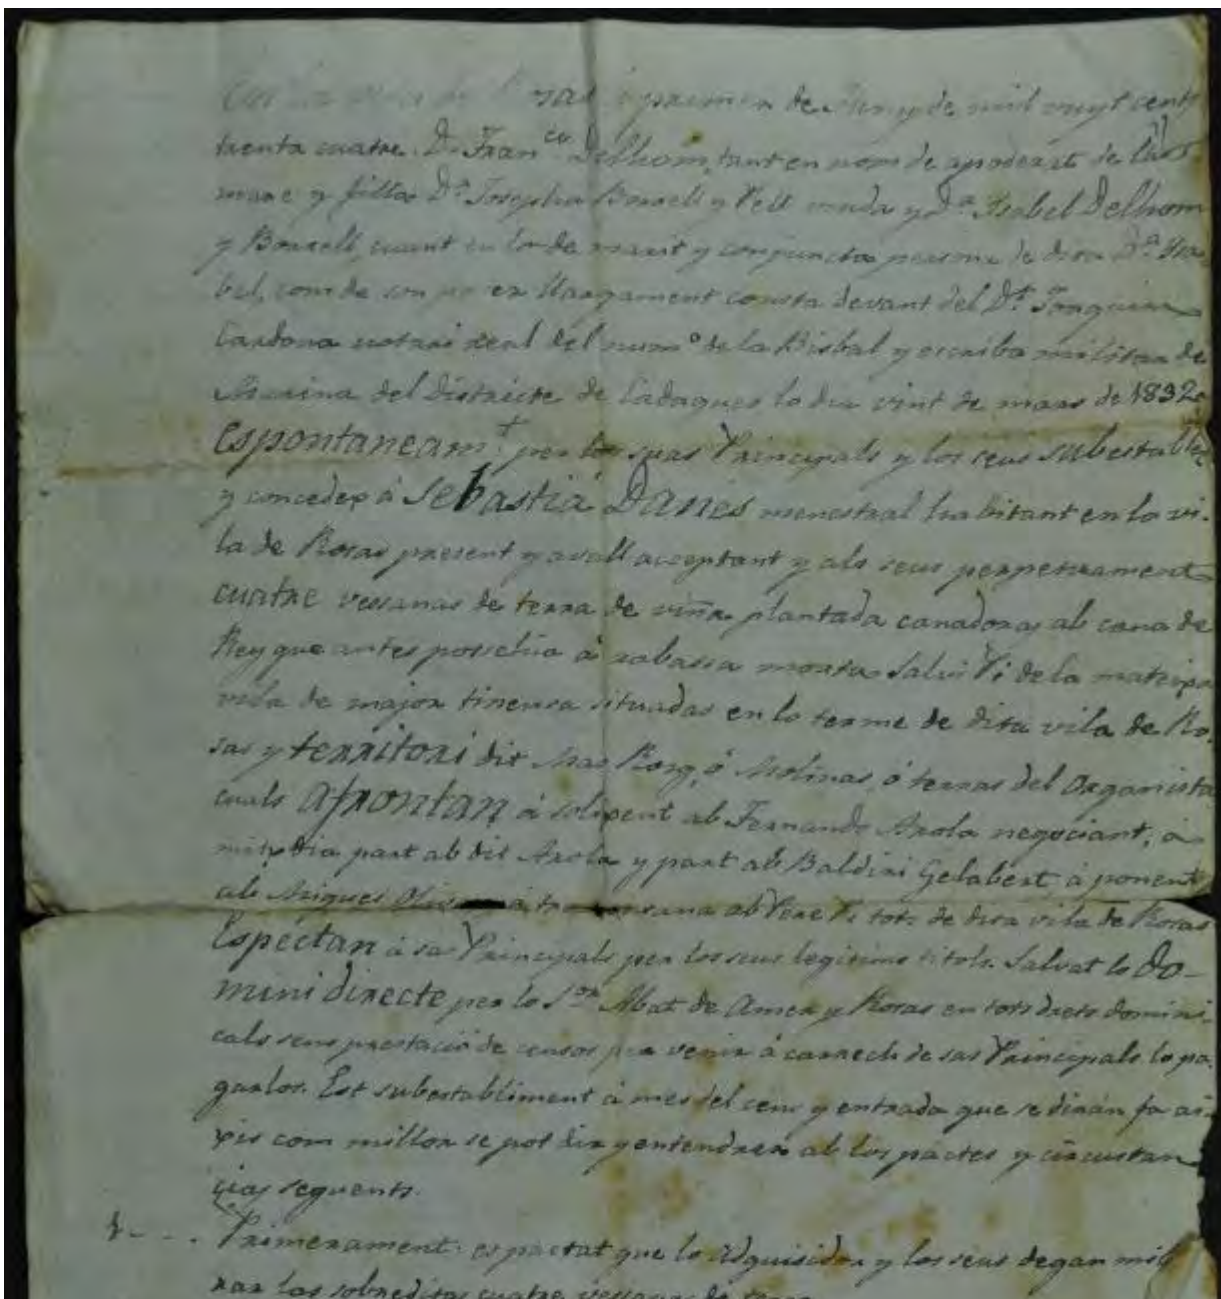 de Juny de mil vuyt cents
trenta cuatre. Dn. Franco. Delhom, tant en nom de apoderat de las
mare y filla Da. Josepha Bonsell y Pell viuda y Da. Isabel Delhom
y Bonsell, cuant en lo de marit y conjuncta persona de dita Da. Isa-
bel, com de son poder llargament consta devant del Dt. Joaquim
Cardona notari real del numo. de la Bisbal y escriba militar de
Marina del Districte de Cadaques lo dia vint de mars de 1832
Espontaneamt. per los suas Principals y los seus subestableix
y concedex á Sebastiá Danés menestral habitant en la vi-
la de Rosas present y avall acceptant y als seus perpetuament
cuatre vessanas de terra de viña plantada canadoras ab cana de
Rey que antes possehia á rabassa morta Salvi Pi de la mateixa
vila de major tinensa situadas en lo terme de dita vila de Ro-
sas y territori dit Mas Roig, ó Molinas, ó terras del Organista
cuals afrontan á solixent ab Fernando Arola negociant, á
mitxdia part ab dit Arola y part ab Baldiri Gelabert á ponent
ab á ab Pere Pi tots de dita vila de Rosas
Espéctan á sas Principals per los seus legitims titols. Salvat lo do-
mini directe per lo Sor. Abat de Amer y Rosas en tots drets domini-
cals sens prestació de censos per venir á carrech de sas Principals lo pa-
garlos. Est subestabliment á mes del cens y entrada que se dirán fa ai-
xis com millor se pot dir y entendrer ab los pactes y circustan-
cias seguents.
1 - - . Primerament: es pactat que lo adquisidor y los seus degan millo-
rar las sobreditas cuatre vessanas de terra